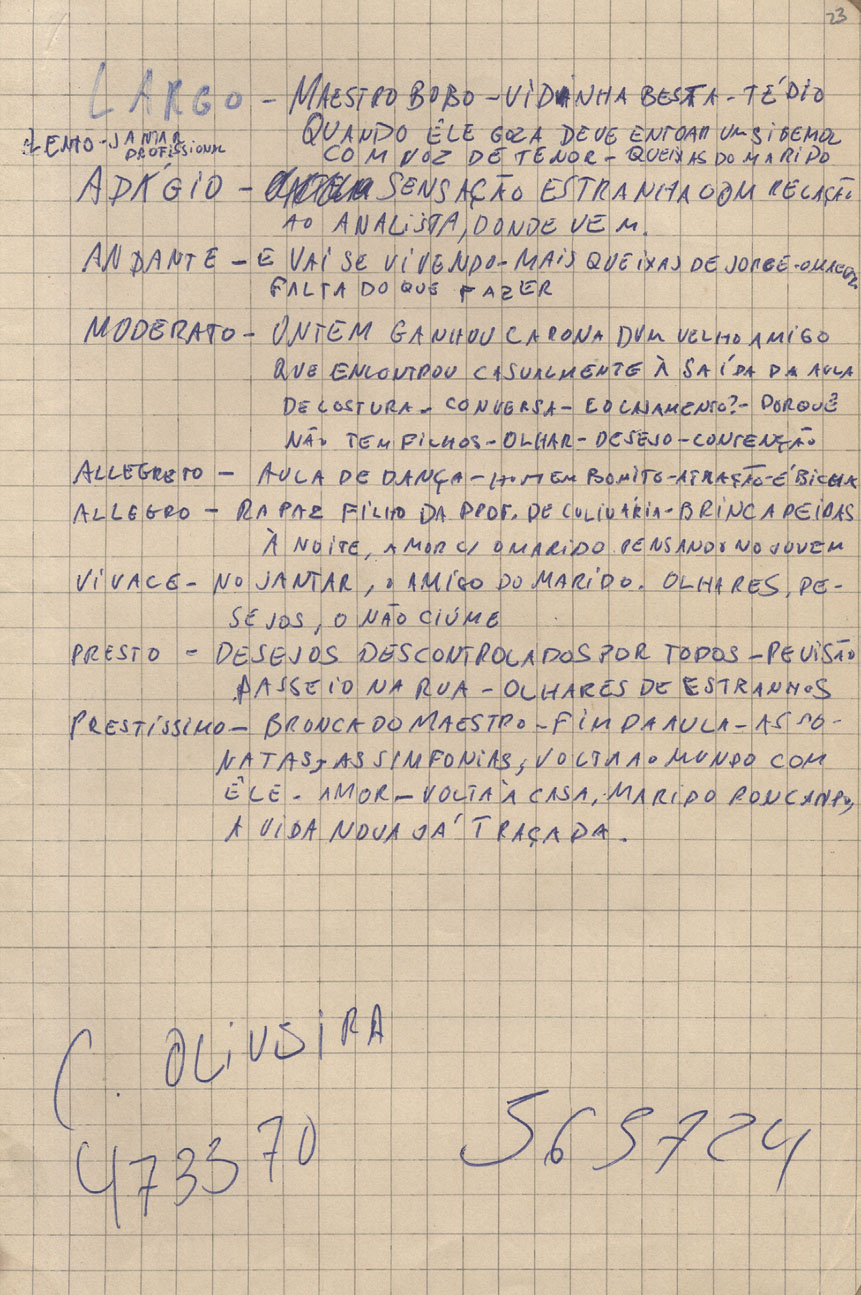 23
LARGO - MAESTRO BOBO - VIDINHA BESTA - TÉDIO
QUANDO ÊLE GOZA DEVE ENTOAR UM SI BEMOL
LENTO - JANTAR PROFISSIONAL
COM VOZ DE TENOR - QUEIXAS DO MARIDO
ADÁGIO - SENSAÇÃO ESTRANHA COM RELAÇÃO
AO ANALISTA, DONDE VEM.
ANDANTE - E VAI SE VIVENDO - MAIS QUEIXAS DE JORGE -
FALTA DO QUE FAZER
MODERATO - ONTEM GANHOU CARONA DUM VELHO AMIGO
QUE ENCONTROU CASUALMENTE À SAÍDA DA AULA
DE COSTURA - CONVERSA - - PORQUÊ
NÃO TEM FILHOS - OLHAR - DESEJO - CONTENÇÃO
ALLEGRETO - AULA DE DANÇA - HOMEM BONITO - ATRAÇÃO - É BICHA
ALLEGRO - RAPAZ FILHO DA PROF. DE CULINÁRIA - BRINCADEIRAS
À NOITE, AMOR C/ O MARIDO PENSANDO NO JOVEM
VIVACE - NO JANTAR, O AMIGO DO MARIDO. OLHARES, DE-
SEJOS, O NÃO CIÚME
PRESTO - DESEJOS DESCONTROLADOS POR TODOS - REVISÃO
PASSEIO NA RUA - OLHARES DE ESTRANHOS
PRESTÍSSIMO - BRONCA DO MAESTRO - FIM DA AULA - AS SO-
NATAS, AS SINFONIAS, VOLTA AO MUNDO COM
ÊLE - AMOR - VOLTA À CASA, MARIDO RONCANDO,
A VIDA NOVA JÁ TRAÇADA.
C. OLIVEIRA
473370
569724